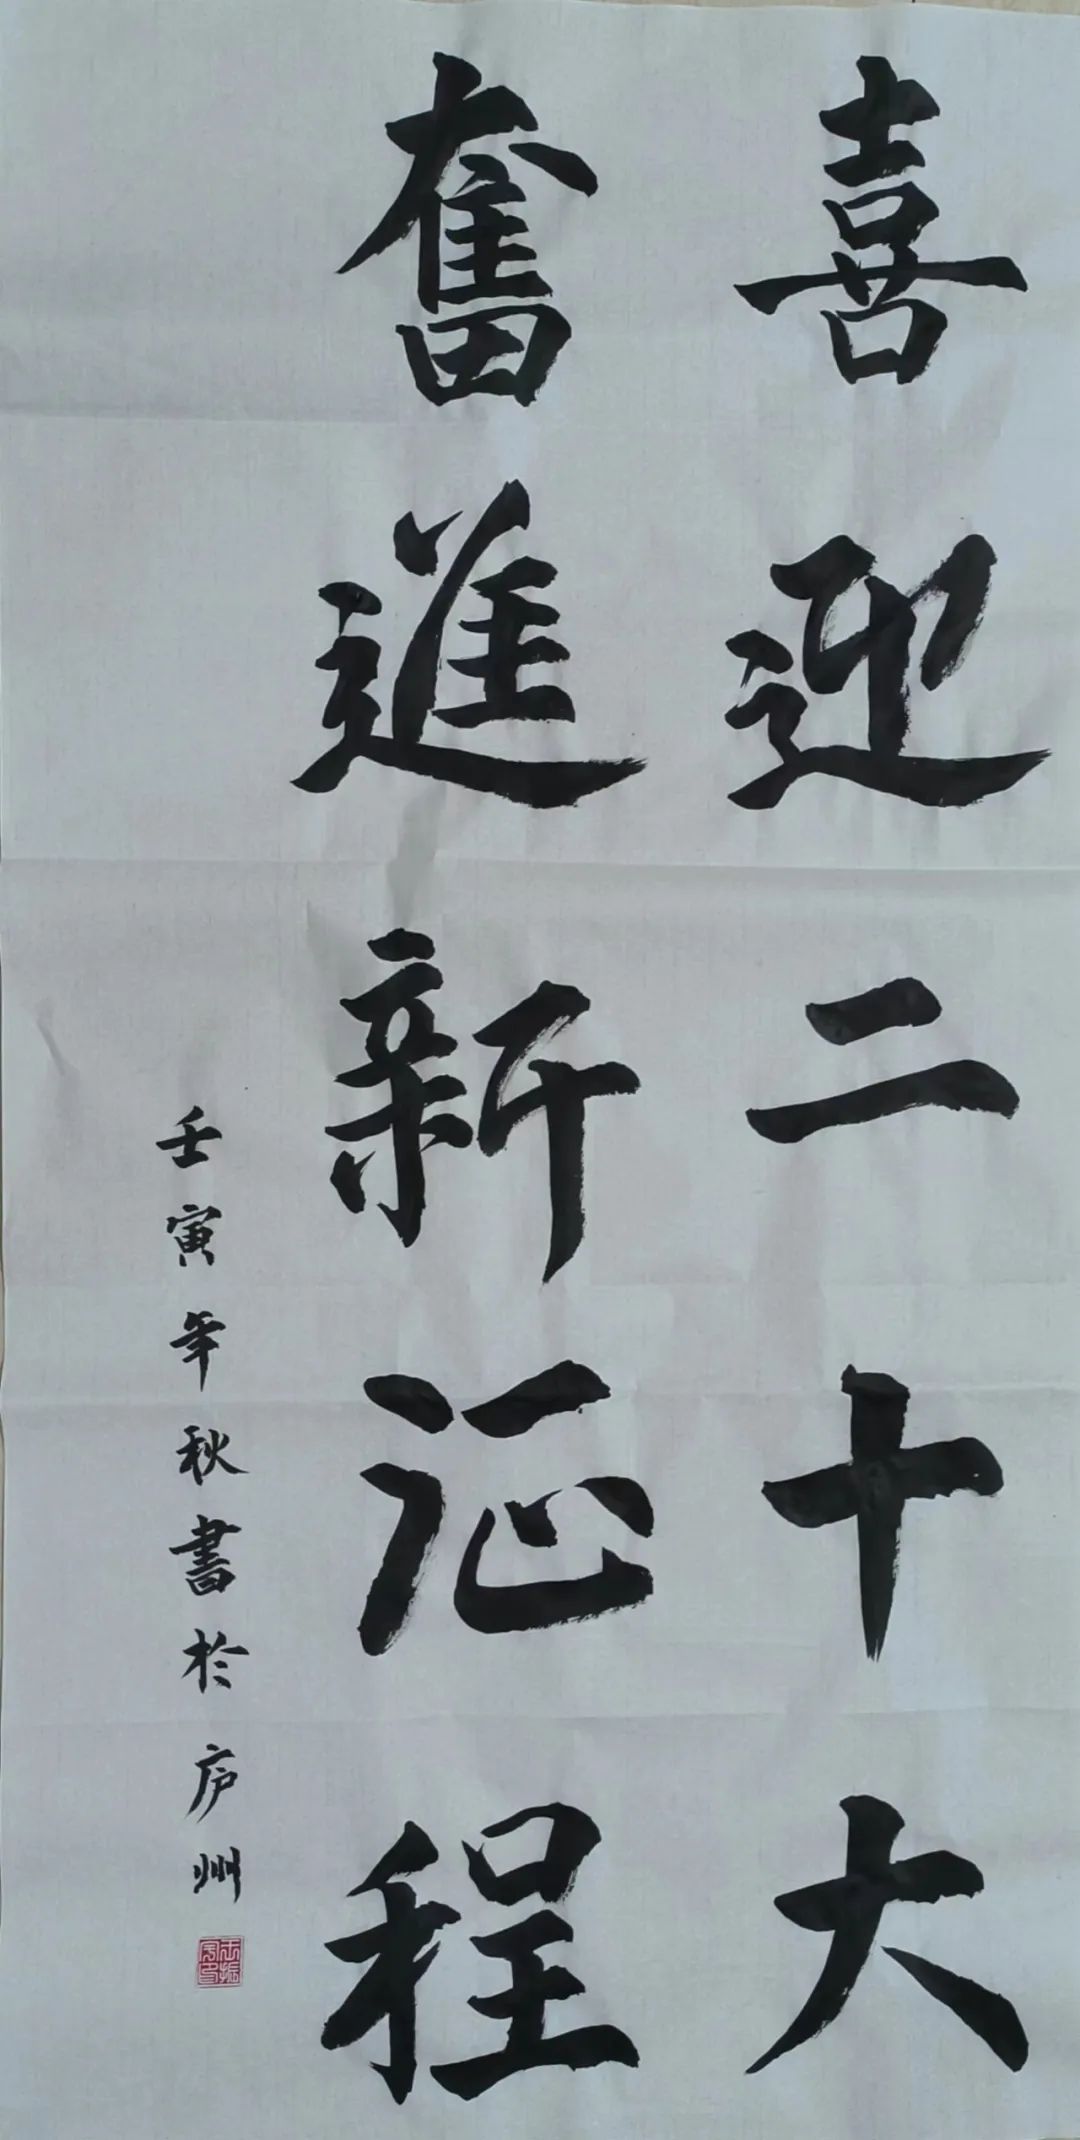 喜迎二十大
奮進新征程
壬寅年秋書於庐州